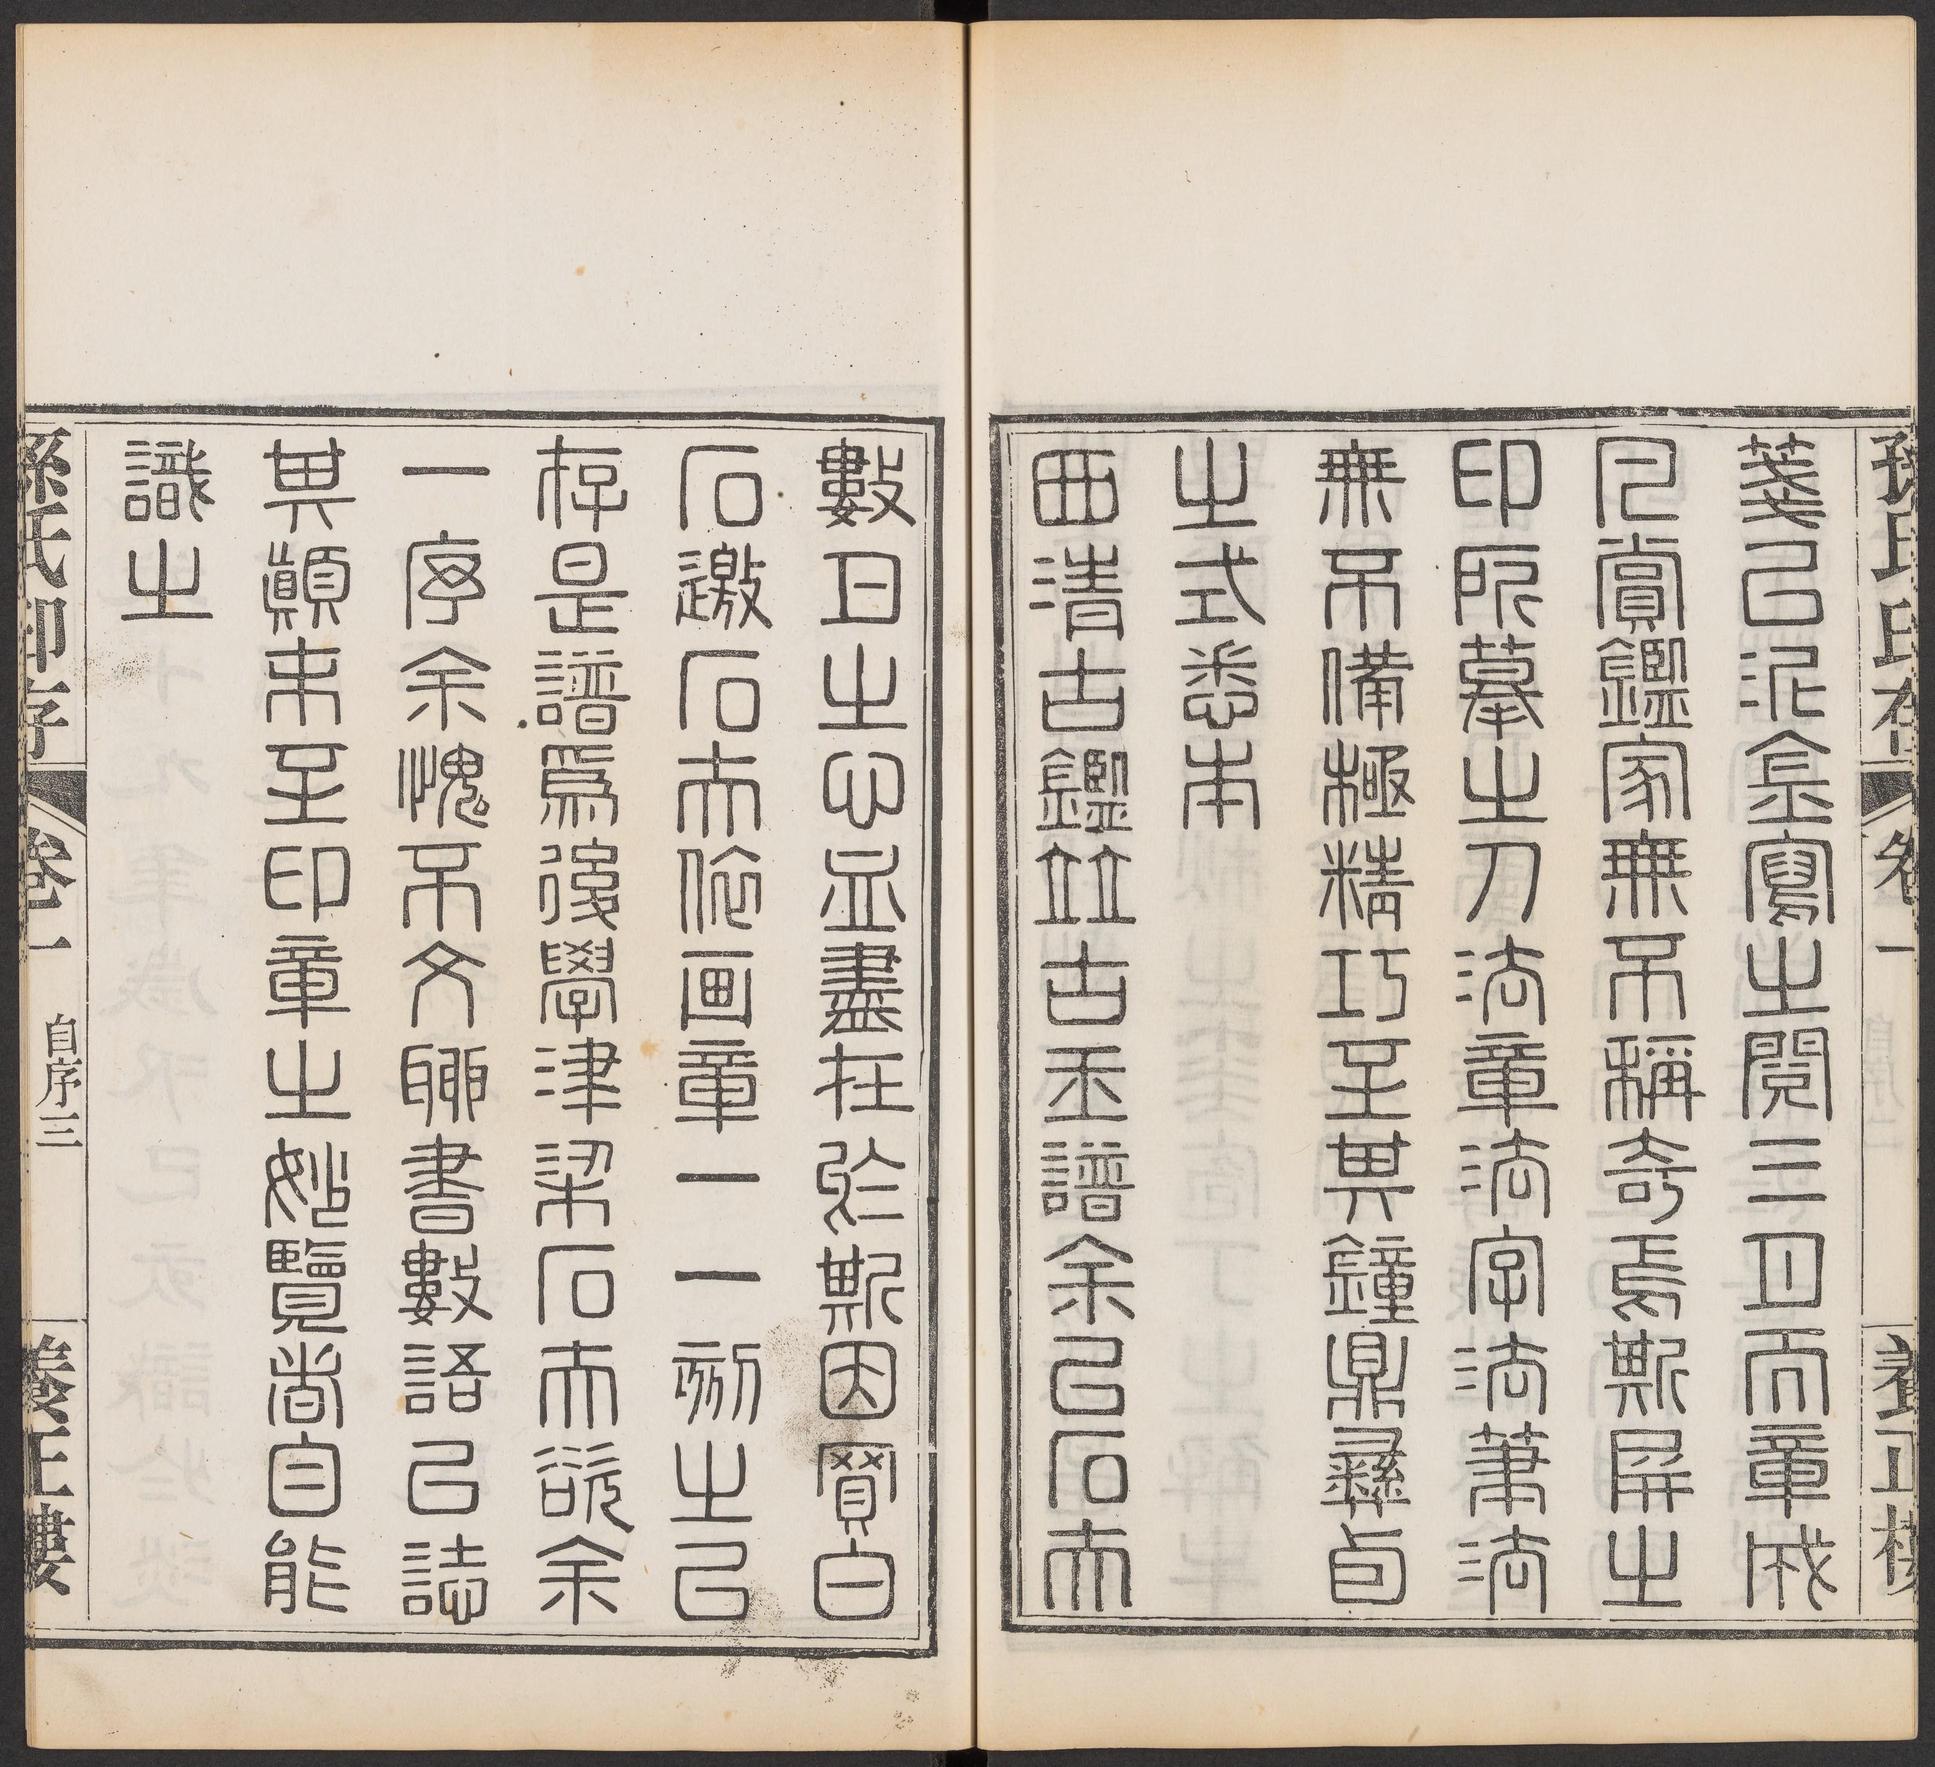 孫氏印存 卷一 自序二 養正樓
箋以泥金寫之閱三月而章成
凡賞鑑家無不稱奇焉斯屏之
印所摹之刀法章法字法筆法
無不備極精巧至其鐘鼎彝卣
之式悉本
西清古鑑並古玉譜余以石市
數月之心血盡在於斯因覓白
石邀石市依画章一一刻之以
存是譜為後學津梁石市欲余
一序余愧不文聊書數語以誌
其顛末至印章之妙覽者自能
識之
孫氏印存 卷一 自序三 養正樓